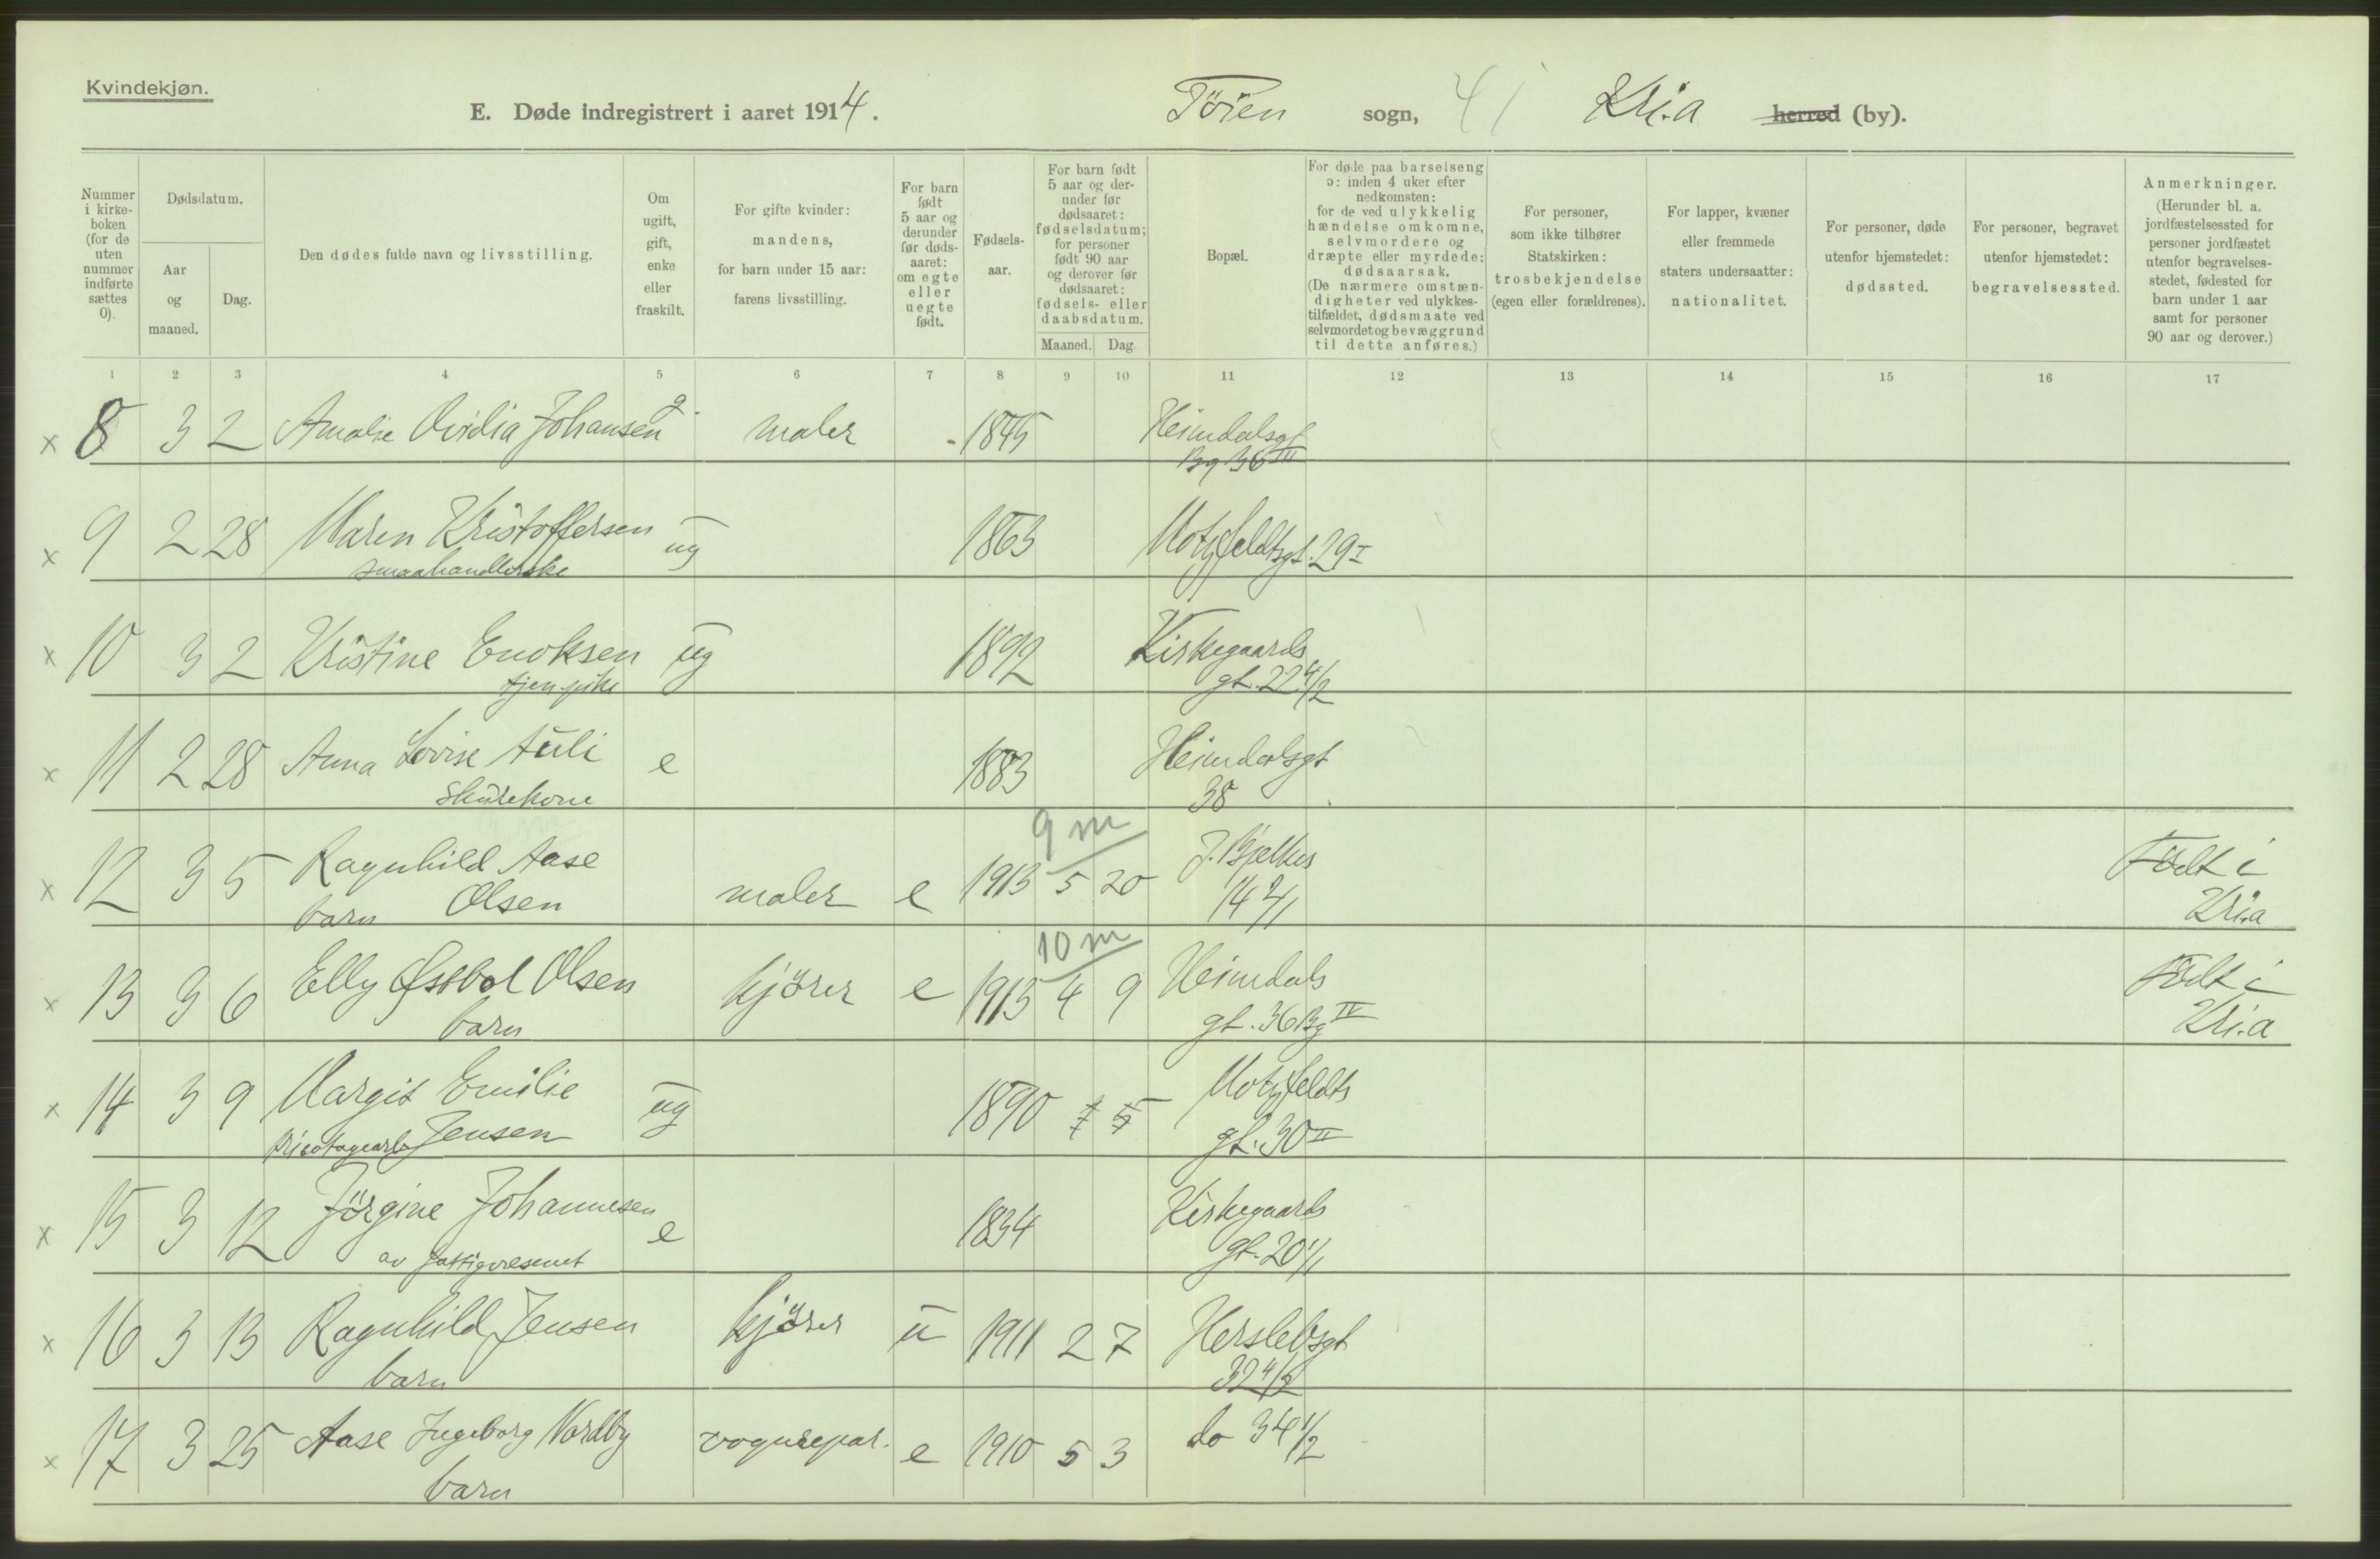 Kvindekjøn.
E. Døde indregistrert i aaret 1914.
Töien sogn, 41 Kri.a herred (by).
Nummer i kirke- boken (for de uten nummer indførte sættes 0).
Dødsdatum.
Aar og maaned.
Dag.
Den dødes fulde navn og livsstilling.
Om ugift, gift, enke eller fraskilt.
For gifte kvinder: mandens, for barn under 15 aar: farens livsstilling.
For barn født 5 aar og derunder før døds- aaret: om egte eller uegte født.
Fødsels- aar.
For barn født 5 aar og der- under før dødsaaret: fødselsdatum; for personer født 90 aar og derover før dødsaaret: fødsels- eller daabsdatum.
Maaned. Dag.
Bopæl.
For døde paa barselseng ɔ: inden 4 uker efter nedkomsten: for de ved ulykkelig hændelse omkomne, selvmordere og dræpte eller myrdede: dødsaarsak. (De nærmere omstæn- digheter ved ulykkes- tilfældet, dødsmaate ved selvmordet og bevæggrund til dette anføres.)
For personer, som ikke tilhører Statskirken: trosbekjendelse (egen eller forældrenes).
For lapper, kvæner eller fremmede staters undersaatter: nationalitet.
For personer, døde utenfor hjemstedet: dødssted.
For personer, begravet utenfor hjemstedet: begravelsessted.
Anmerkninger. (Herunder bl. a. jordfæstelsessted for personer jordfæstet utenfor begravelses- stedet, fødested for barn under 1 aar samt for personer 90 aar og derover.)
1 2 3 4 5 6 7 8 9 10 11 12 13 14 15 16 17
x 8 3 2 Amalie Ovidia Johansen g. maler 1845 Heimdalsgt
Bg 36 III
x 9 2 28 Maren Kristoffersen ug 1863 Motzfeldtsgt. 29 I
smaahandlerske
x 10 3 2 Kristine Enoksen ug 1892 Kirkegaards
tjen.pike gt. 22 4/2
x 11 2 28 Anna Lovise Auli e 1883 Heimdalsgt
Skurekone 38
9 m
x 12 3 5 Ragnhild Aase maler e 1913 5 20 J. Bjelkes Födt i
barn Olsen 14 2/1 Kri.a
10 m
x 13 3 6 Elly Østbol Olsen kjörer e 1913 4 9 Heimdals Födt i
barn gt. 36 Bg IV Kri.a
x 14 3 9 Margit Emilie ug 1890 Motzfeldts
tricotagearb. Jensen gt. 30 II
x 15 3 12 Jörgine Johannesen e 1834 Kirkegaards
av fattigvesenet gt. 20 1/1
x 16 3 13 Ragnhild Jensen kjörer u 1911 2 7 Herslebsgt
barn 32 4/2
x 17 3 25 Aase Ingeborg Nordby vognrepar. e 1910 5 3 do 34 1/2
barn